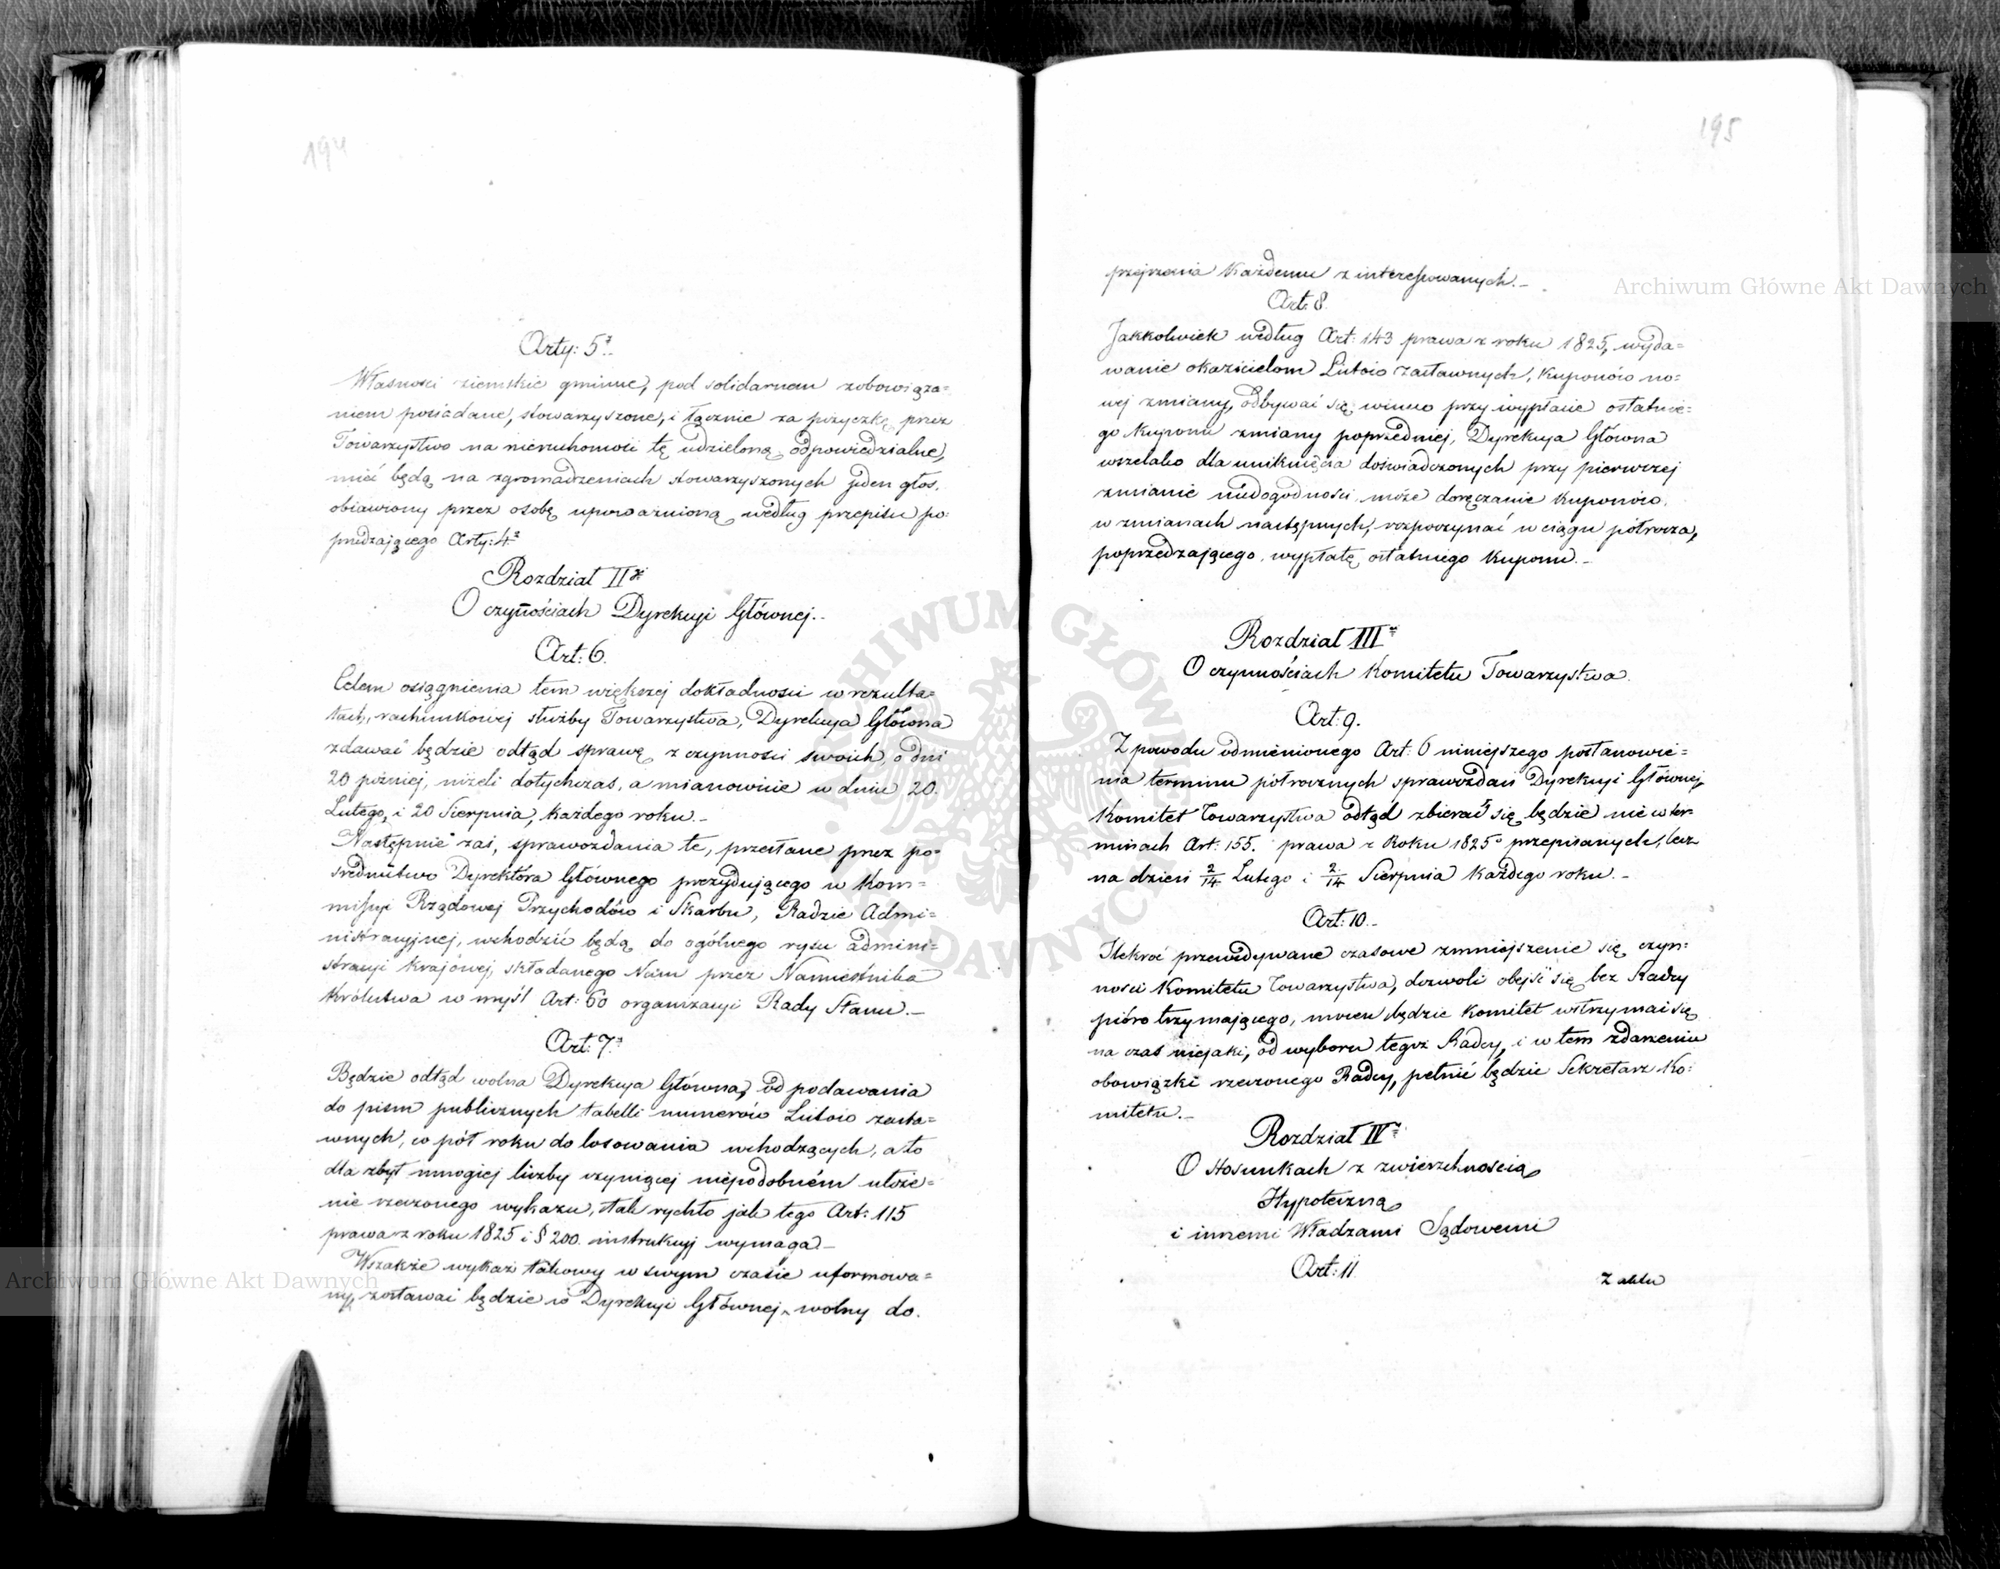 194
Arty: 5ty.
Własności ziemskie gminne, pod solidarnem zobowiąza=
niem posiadane, stowarzyszone, i łącznie za pożyczkę przez
Towarzystwo na nieruchomość tę udzieloną odpowiedzialne,
mieć będą na zgromadzeniach stowarzyszonych jeden głos,
obiawiony przez osobę upoważnioną według przepisu po=
przedzającego Arty: 4º
Rozdział IIgi
O czyñościach Dyrekcyi Głównej.
Art: 6.
Celem osiągnienia tem większej dokładności w rezulta=
tach, rachunkowej służby Towarzystwa, Dyrekcya Główna
zdawać będzie odtąd sprawę z czynności swoich, o dni
20 później, niżeli dotychczas, a mianowicie w dniu 20.
Lutego, i 20 Sierpnia, każdego roku.
Następnie zaś, sprawozdania te, przesłane przez po=
średnictwo Dyrektora Głównego prezydującego w Kom=
missyi Rządowej Przychodów i Skarbu, Radzie Admi=
nistracyjnej, wchodzić będą do ogólnego rysu admini=
stracyi krajowej, składanego Nam przez Namiestnika
Królestwa w myśl Art: 60 organizacyi Rady Stanu.
Art: 7.
Będzie odtąd wolna Dyrekcya Główna, od podawania
do pism publicznych tabelli numerów Listów zasta=
wnych, co pół roku do losowania wchodzących, a to
dla zbyt mnogiej liczby czyniącej niepodobném ułoże=
nie rzeczonego wykazu, tak rychło jak tego Art: 115
prawa z roku 1825 i § 200. instrukcyj wymaga.
Wszakże wykaz takowy w swym czasie uformowa=
ny, zostawać będzie w Dyrekcyi Głównej, wolny do.
195
przejrzenia każdemu z interessowanych.
Art: 8.
Jakkolwiek według Art: 143 prawa z roku 1825, wyda=
wanie okazicielom Listów zastawnych, kuponów no=
wej zmiany, odbywać się winno przy wypłacie ostatnie=
go kuponu zmiany poprzedniej, Dyrekcya Główna
wszelako dla uniknięcia doświadczonych przy pierwszej
zmianie niedogodności może doręczanie kuponów,
w zmianach następnych, rozpoczynać w ciągu półrocza,
poprzedzającego wypłatę ostatniego kuponu.
Rozdział III
O czynnościach Komitetu Towarzystwa.
Art: 9.
Z powodu odmienionego Art: 6 niniejszego postanowie=
nia terminu półrocznych sprawozdań Dyrekcyi Głównej,
Komitet Towarzystwa odtąd zbierać się będzie nie w ter=
minach Art: 155. prawa z Roku 1825º przepisanych, lecz
na dzień 2/14 Lutego i 2/14 Sierpnia każdego roku.
Art: 10.
Ilekroć przewidywane czasowe zmniejszenie się czyn=
ności Komitetu Towarzystwa, dozwoli obejść się bez Radcy
pióro trzymającego, mocen będzie Komitet wstrzymać się
na czas niejaki, od wyboru tegoż Radcy, i w tem zdarzeniu
obowiązki rzeczonego Radcy, pełnić będzie Sekretarz Ko=
mitetu.
Rozdział IV
O stosunkach z zwierzchnością
Hypoteczną
i innemi Władzami Sądowemi
Art: 11.
Z aktu
Archiwum Główne Akt Dawnych
Archiwum Główne Akt Dawnych
ARCHIWUM GŁÓWNE AKT DAWNYCH